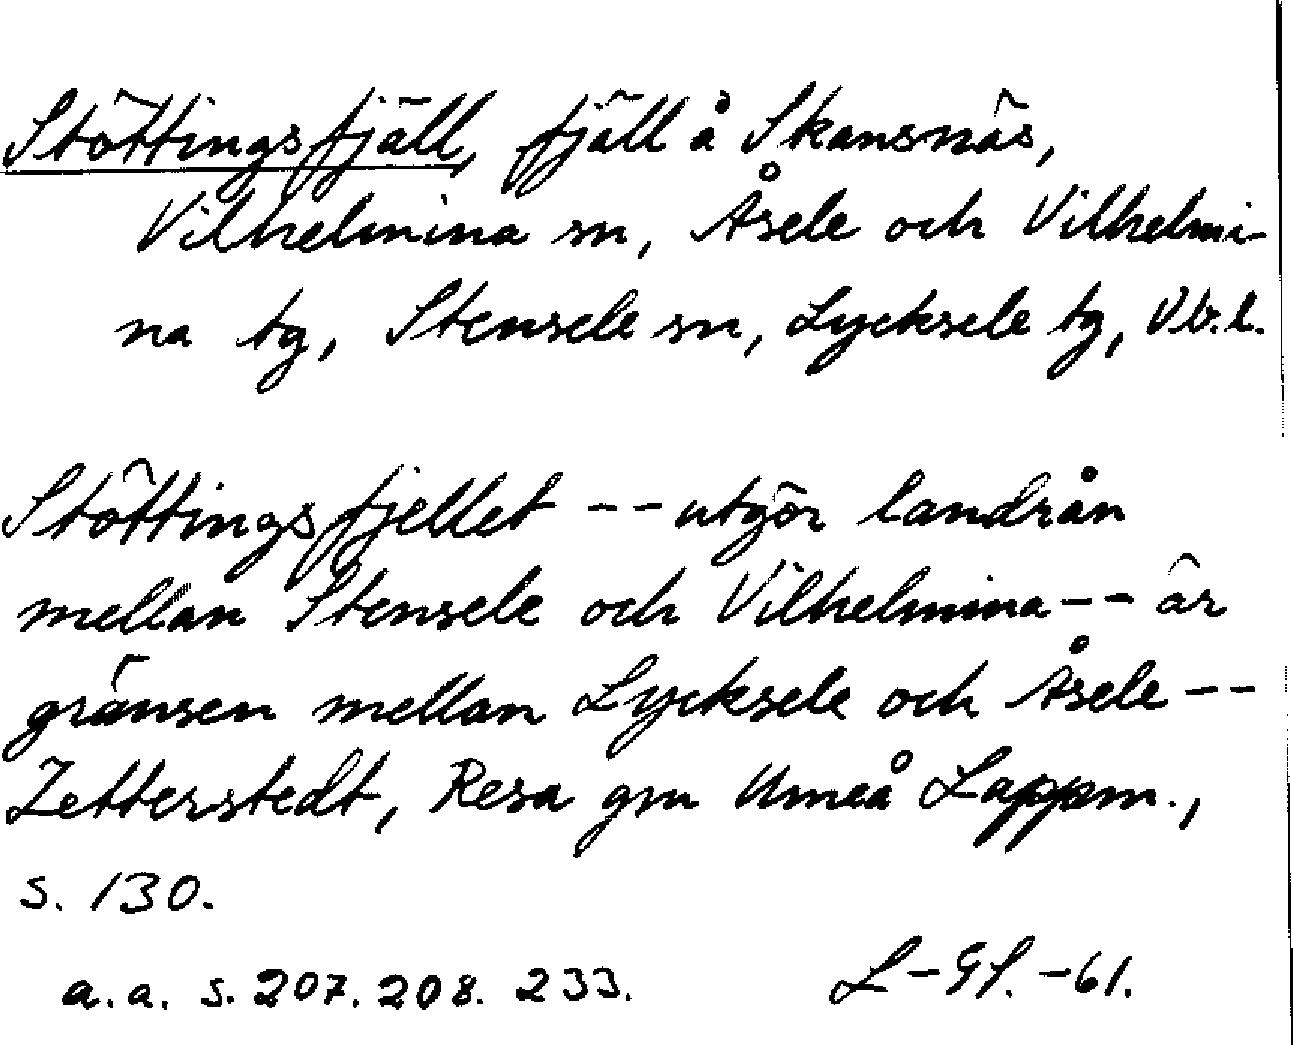 Stöttingsfjäll, fjäll å Skansnäs,
Vilhelmina sn, Åsele och Vilhelmi-
na tg, Stensele sn, Lycksele tg, Vb.l.
Stöttingsfjellet -- utgör landrån
mellan Stensele och Vilhelmina -- är
gränsen mellan Lycksele och Åsele --
Zetterstedt, Resa gm Umeå Lappm.,
s. 130.
a.a. s. 207. 208. 233. L-Gl. -61.